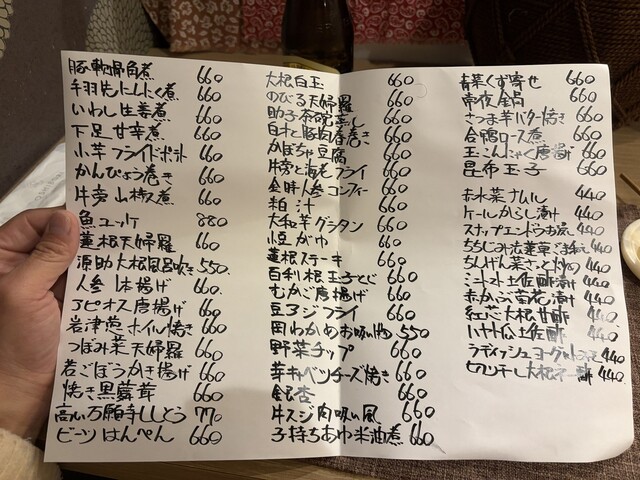 豚軟骨角煮 660
手羽先にんにく煮 660
いわし生姜煮 660
下足甘辛煮 660
小芋フライドポテト 660
かんぴょう巻き 660
牛蒡山椒煮 660
魚ユッケ 880
蓮根天婦羅 660
源助大根風呂吹き 550
人参一本揚げ 660
アピオス唐揚げ 660
岩津葱ホイル焼き 660
つぼみ菜天婦羅 660
若ごぼうかき揚げ 660
焼き黒舞茸 660
高山万願寺ししとう 770
ビーツはんぺん 660
大根白玉 660
のびる天婦羅 660
助子茶碗蒸し 660
白ねぎ豚肉春巻き 660
かぼちゃ豆腐 660
牛蒡と海老フライ 660
金時人参コンフィー 660
粕汁 660
大和芋グラタン 660
小豆がゆ 660
蓮根ステーキ 660
百合根玉子とじ 660
むかご唐揚げ 660
豆アジフライ 660
岡わかめお吸い物 550
野菜チップ 660
芽キャベツチーズ焼き 660
銀杏 660
牛スジ肉吸い風 660
子持ちあゆ米油煮 660
青菜くず寄せ 660
常夜鍋 660
さつま芋バター焼き 660
合鴨ロース煮 660
玉こんにゃく唐揚げ 660
昆布玉子 660
赤水菜ナムル 440
ケールからし漬け 440
スナップエンドウお浸し 440
ちぢみほうれん草ごま和え 440
ちしゃげん菜さっと炒め 440
ミニトマト土佐酢漬け 440
赤かぶら菊花漬け 440
紅芯大根甘酢 440
ハヤトウリ土佐酢 440
ラディッシュヨーグルト 440
切り干し大根 440